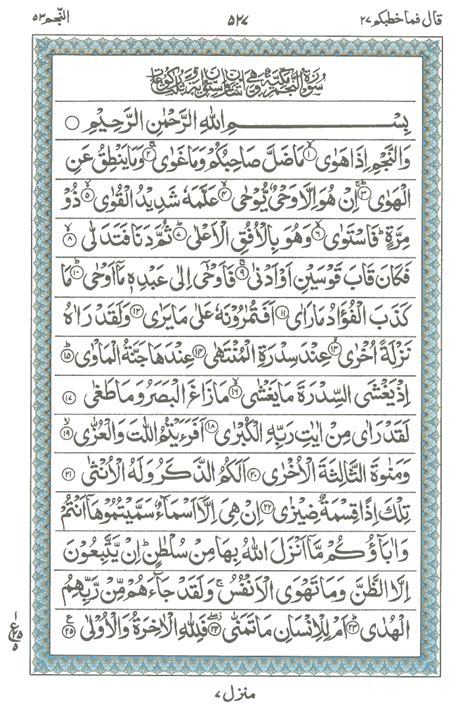 قال فما خطبکم ۲۷ ۵۲۷ النجم ۵۳
سُوْرَةُ النَّجْمِ مَكِّيَّةٌ وَّهِيَ اثْنَتَانِ وَسِتُّوْنَ اٰيَةً وَّثَلٰثُ رُكُوْعَاتٍ
بِسْمِ اللّٰهِ الرَّحْمٰنِ الرَّحِيْمِ
وَالنَّجْمِ اِذَا هَوٰى ۱ مَا ضَلَّ صَاحِبُكُمْ وَمَا غَوٰى ۲ وَمَا يَنْطِقُ عَنِ
الْهَوٰى ۳ اِنْ هُوَ اِلَّا وَحْيٌ يُّوْحٰى ۴ عَلَّمَهٗ شَدِيْدُ الْقُوٰى ۵ ذُوْ
مِرَّةٍ فَاسْتَوٰى ۶ وَهُوَ بِالْاُفُقِ الْاَعْلٰى ۷ ثُمَّ دَنَا فَتَدَلّٰى ۸
فَكَانَ قَابَ قَوْسَيْنِ اَوْ اَدْنٰى ۹ فَاَوْحٰى اِلٰى عَبْدِهٖ مَآ اَوْحٰى ۱۰ مَا
كَذَبَ الْفُؤَادُ مَا رَاٰى ۱۱ اَفَتُمٰرُوْنَهٗ عَلٰى مَا يَرٰى ۱۲ وَلَقَدْ رَاٰهُ
نَزْلَةً اُخْرٰى ۱۳ عِنْدَ سِدْرَةِ الْمُنْتَهٰى ۱۴ عِنْدَهَا جَنَّةُ الْمَاْوٰى ۱۵
اِذْ يَغْشَى السِّدْرَةَ مَا يَغْشٰى ۱۶ مَا زَاغَ الْبَصَرُ وَمَا طَغٰى ۱۷
لَقَدْ رَاٰى مِنْ اٰيٰتِ رَبِّهِ الْكُبْرٰى ۱۸ اَفَرَءَيْتُمُ اللّٰتَ وَالْعُزّٰى ۱۹
وَمَنٰوةَ الثَّالِثَةَ الْاُخْرٰى ۲۰ اَلَكُمُ الذَّكَرُ وَلَهُ الْاُنْثٰى ۲۱
تِلْكَ اِذًا قِسْمَةٌ ضِيْزٰى ۲۲ اِنْ هِيَ اِلَّآ اَسْمَآءٌ سَمَّيْتُمُوْهَآ اَنْتُمْ
وَاٰبَآؤُكُمْ مَّآ اَنْزَلَ اللّٰهُ بِهَا مِنْ سُلْطٰنٍ اِنْ يَّتَّبِعُوْنَ
اِلَّا الظَّنَّ وَمَا تَهْوَى الْاَنْفُسُ وَلَقَدْ جَآءَهُمْ مِّنْ رَّبِّهِمُ
الْهُدٰى ۲۳ اَمْ لِلْاِنْسَانِ مَا تَمَنّٰى ۲۴ فَلِلّٰهِ الْاٰخِرَةُ وَالْاُوْلٰى ۲۵
۱ ع ۲۵ ۵
منزل ۷